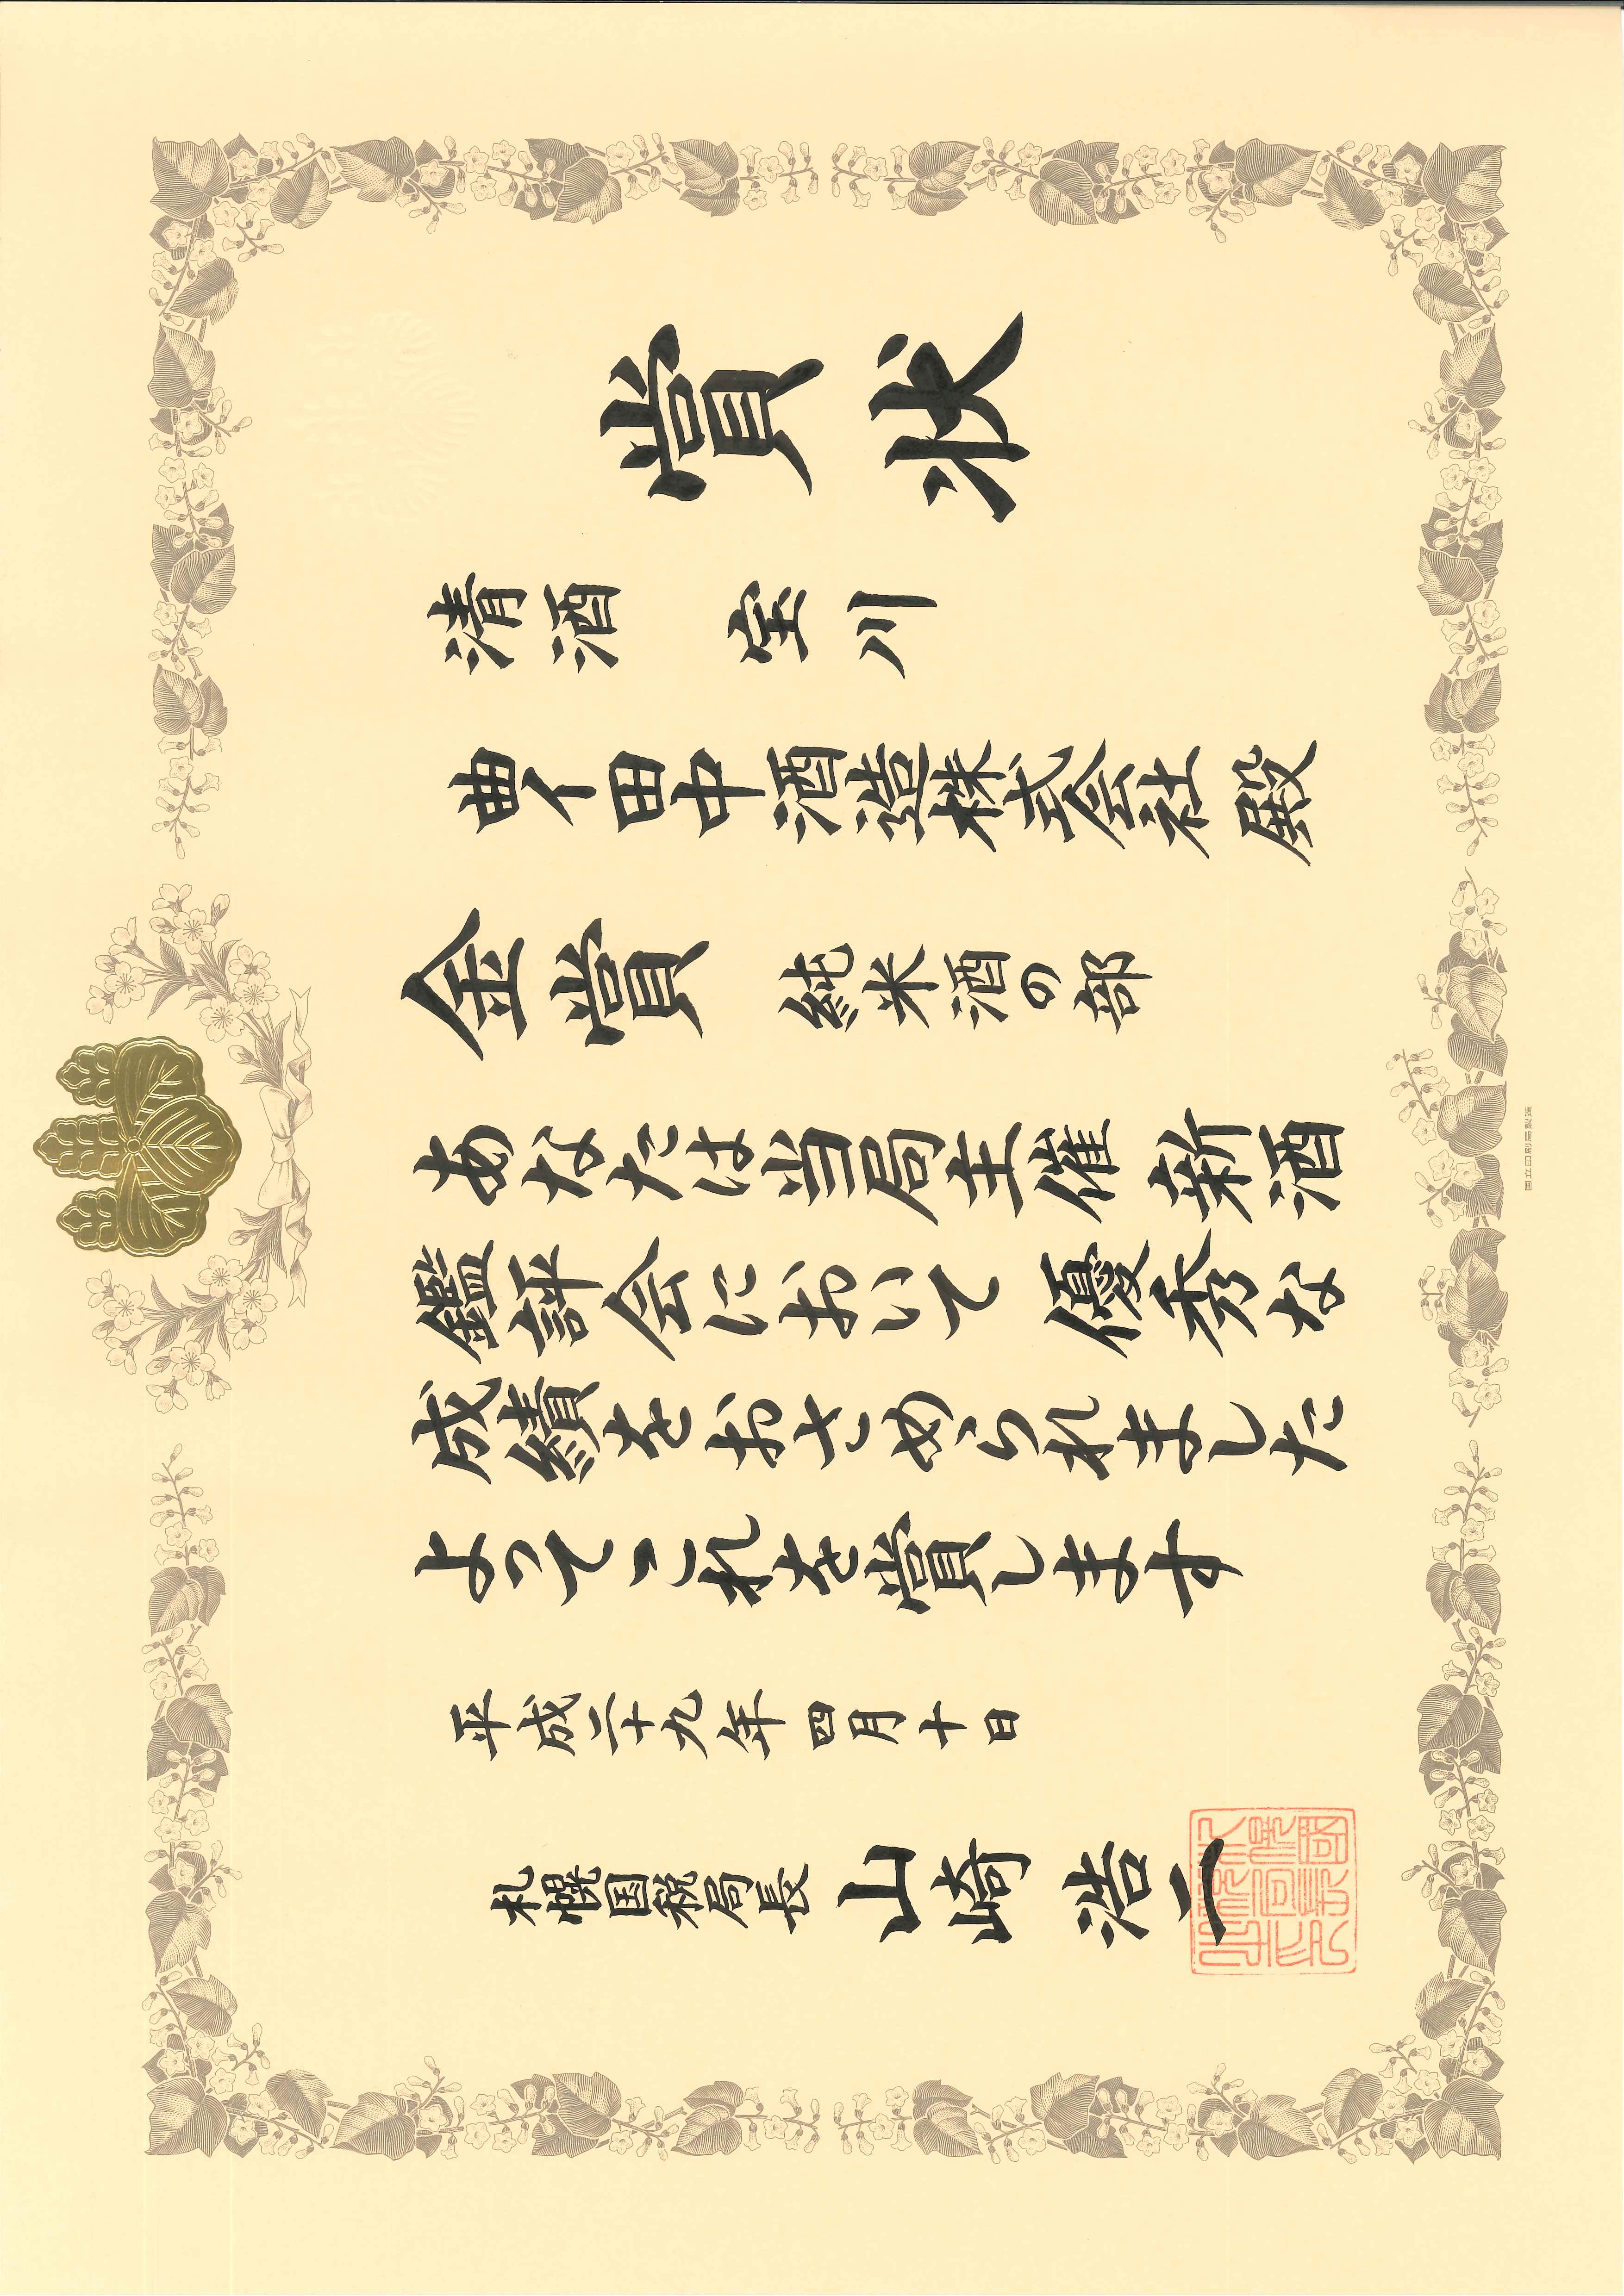 賞状
清酒 宝川
曲イ田中酒造株式会社 殿
金賞 純米酒の部
あなたは当局主催 新酒
鑑評会において 優秀な
成績をおさめられました
よってこれを賞します
平成二十九年四月十日
札幌国税局長 山崎 浩一
国立印刷局製造